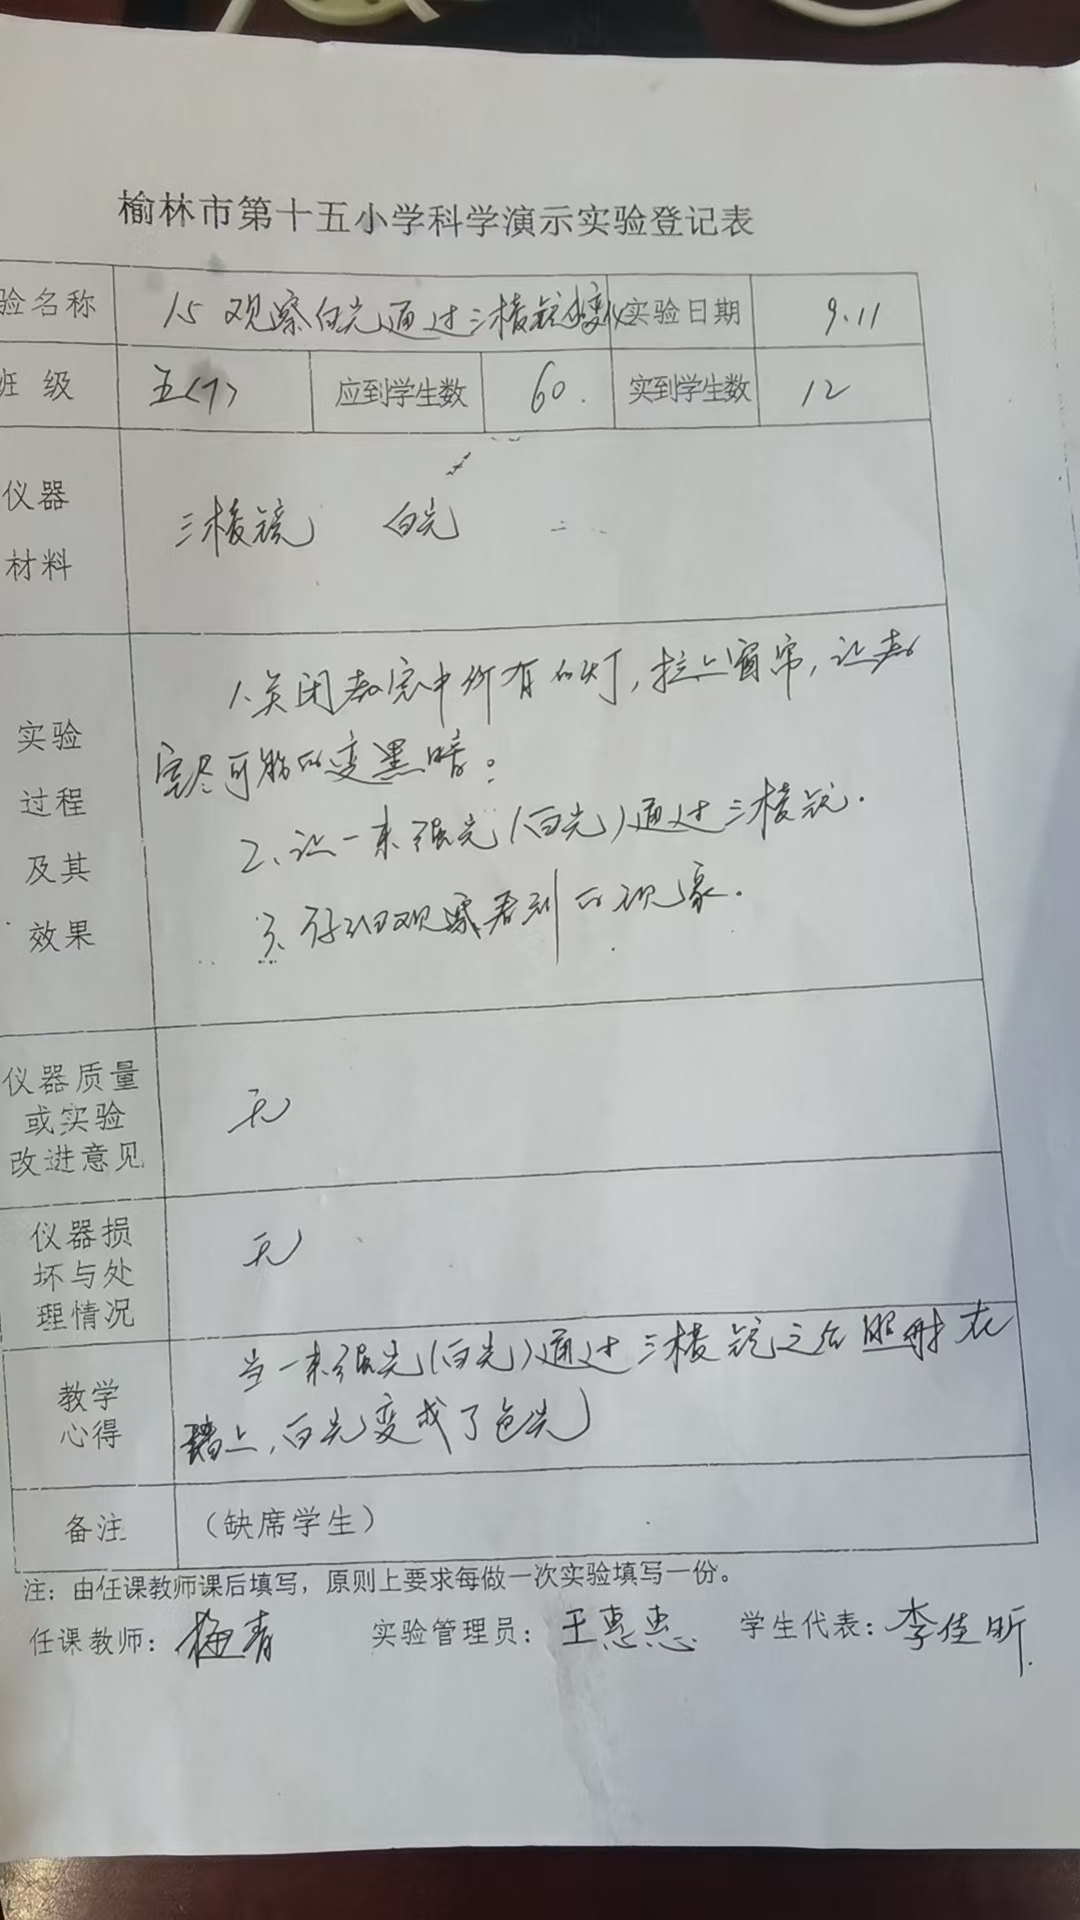 榆林市第十五小学科学演示实验登记表
验名称 15 观察白光通过三棱镜的变化 实验日期 9.11
班级 五(7) 应到学生数 60. 实到学生数 12
仪器
材料
三棱镜 白光
实验
过程
及其
效果
1.关闭教室中所有的灯,拉上窗帘,让教
室尽可能的变黑暗;
2、让一束强光(白光)通过三棱镜.
3、仔细观察看到的现象.
仪器质量
或实验
改进意见
无
仪器损
坏与处
理情况
无
教学
心得
当一束强光(白光)通过三棱镜之后照射在
墙上,白光变成了色光
备注 (缺席学生)
注:由任课教师课后填写,原则上要求每做一次实验填写一份。
任课教师: 梅青 实验管理员: 王惠惠 学生代表: 李佳昕